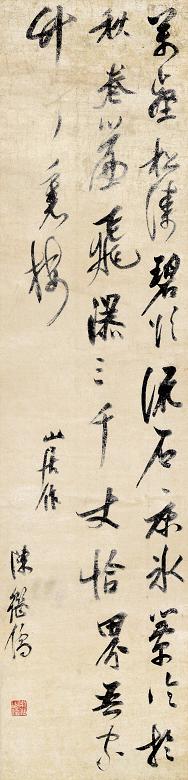 萬壑松濤碧欲流石床冰簟冷於
秋卷簾飛瀑三千丈恰界吾家
竹裏樓
山居作
陳繼儒